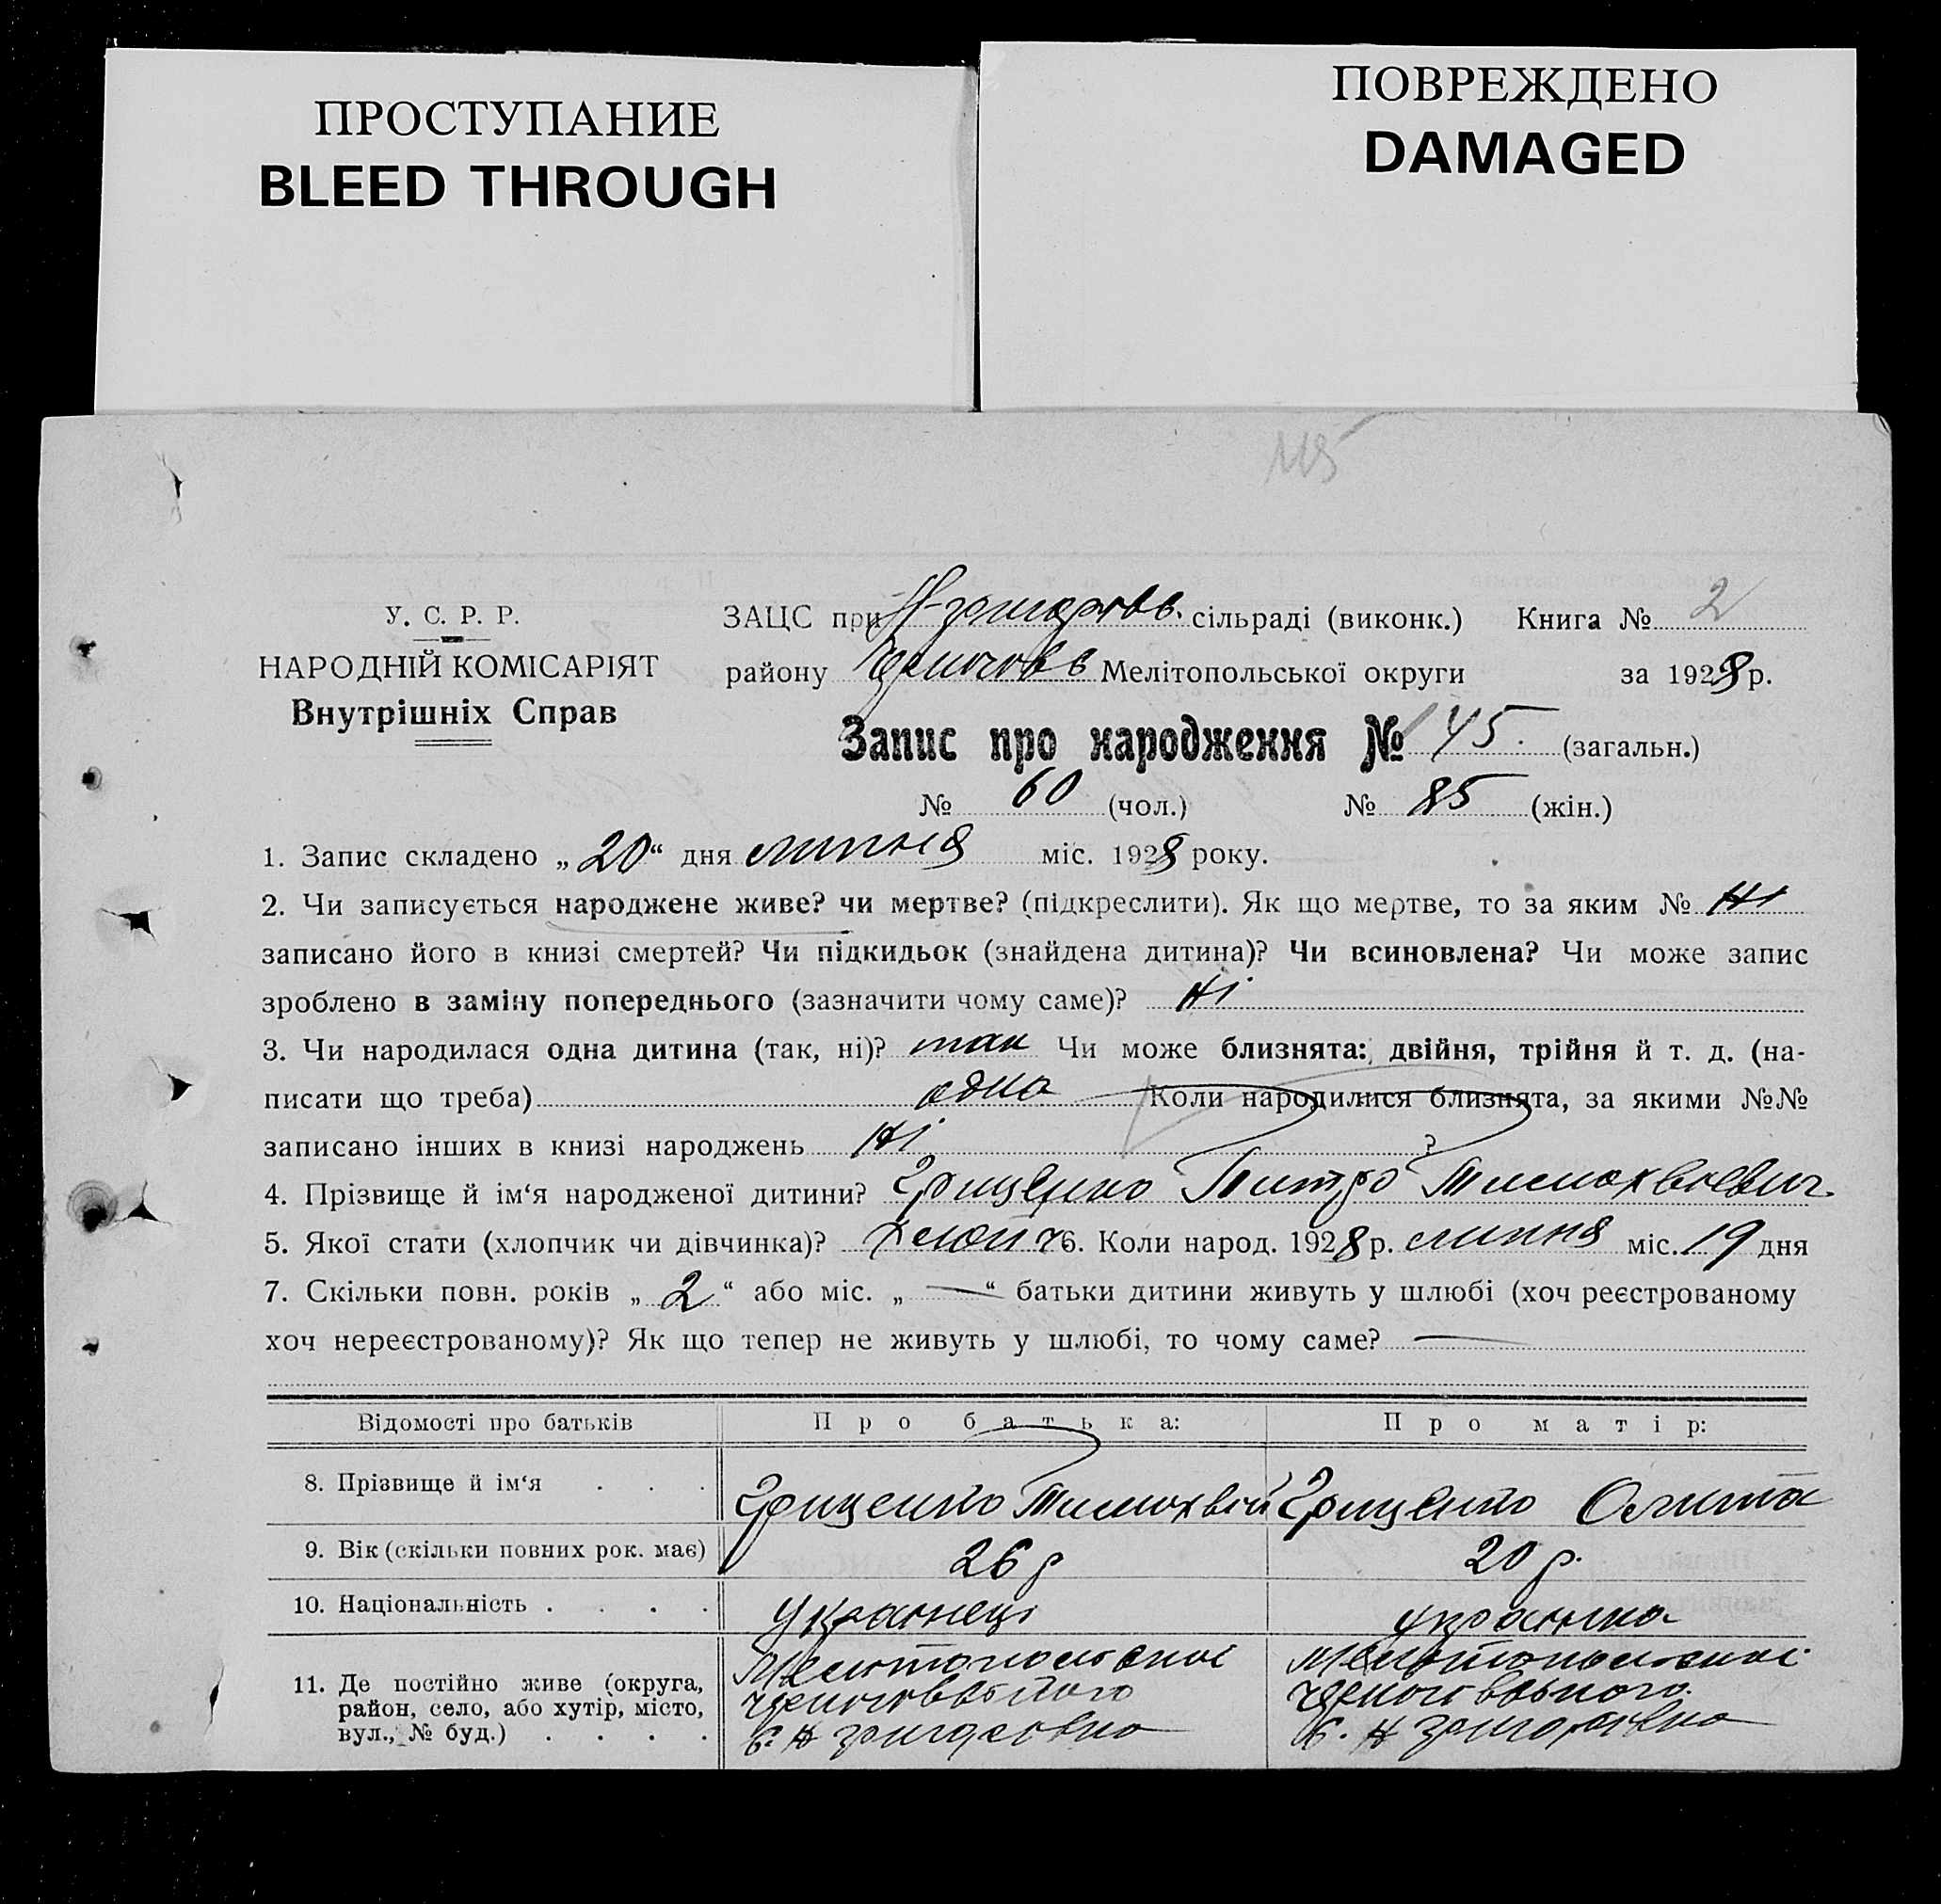 ПРОСТУПАНИЕ
BLEED THROUGH
ПОВРЕЖДЕНО
DAMAGED
115
У. С. Р. Р.
НАРОДНІЙ КОМІСАРІЯТ
Внутрішніх Справ
ЗАЦС при сільраді (виконк.) Книга № 2
району Мелітопольської округи за 1928 р.
Запис про народження № 145. (загальн.)
№ 60 (чол.) № 85 (жін.)
1. Запис складено „20“ дня липня міс. 1928 року.
2. Чи записується народжене живе? чи мертве? (підкреслити). Як що мертве, то за яким № Ні
записано його в книзі смертей? Чи підкидьок (знайдена дитина)? Чи всиновлена? Чи може запис
зроблено в заміну попереднього (зазначити чому саме)? Ні
3. Чи народилася одна дитина (так, ні)? так Чи може близнята: двійня, трійня й т. д. (на-
писати що треба) одна Коли народилися близнята, за якими №№
записано інших в книзі народжень Ні ?
4. Прізвище й ім‘я народженої дитини? Грищенко Питро Тимохвієвич
5. Якої стати (хлопчик чи дівчинка)? Хлопч 6. Коли народ. 1928 р. липня міс. 19 дня
7. Скільки повн. років „2“ або міс. „—“ батьки дитини живуть у шлюбі (хоч реєстрованому
хоч нереєстрованому)? Як що тепер не живуть у шлюбі, то чому саме? —
Відомості про батьків Про батька: Про матір:
8. Прізвище й ім‘я . . . Грищенко Тимохвій Грищенко
9. Вік (скільки повних рок. має) 26 р 20 р.
10. Національність . . . . Украінець украінка
11. Де постійно живе (округа, район, село, або хутір, місто, вул., № буд.) . . . . Мелітопольскоі Мелітопольскоі
с. Н с. Н